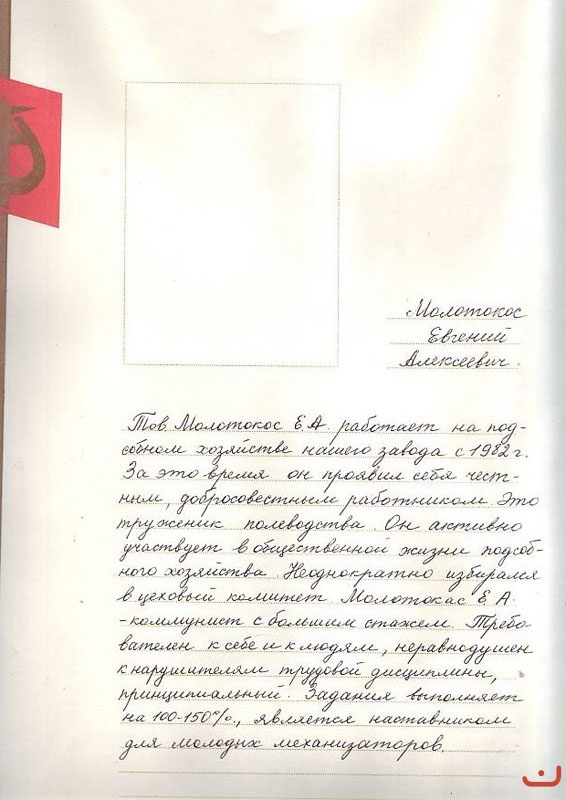 Молотокос
Евгений
Алексеевич.
Тов. Молотокос Е.А. работает на под-
собном хозяйстве нашего завода с 1982 г.
За это время он проявил себя чест-
ным, добросовестным работником. Это
труженик полеводства. Он активно
участвует в общественной жизни подсоб-
ного хозяйства. Неоднократно избирался
в цеховый комитет. Молотокас Е.А.
- коммунист с большим стажем. Требо
вателен к себе и к людям, неравнодушен
к нарушителям трудовой дисциплины,
принципиальный. Задания выполняет
на 100-150%, является наставником
для молодых механизаторов.